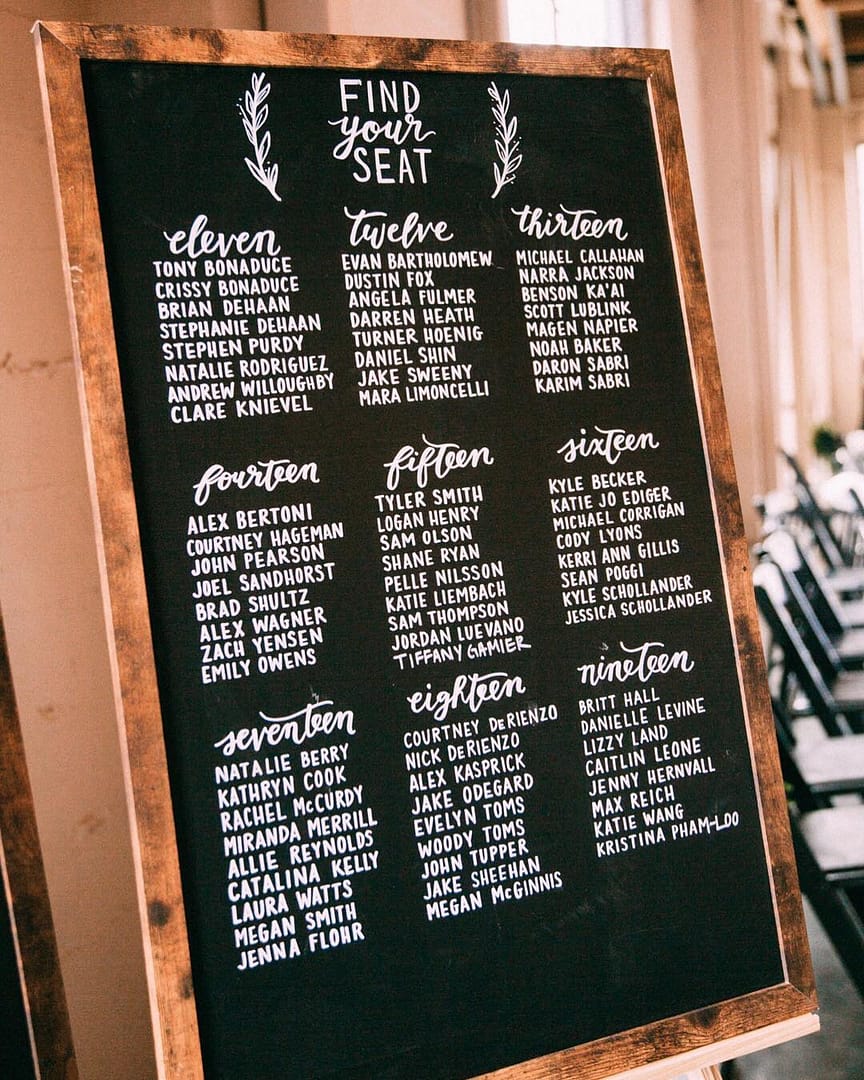 FIND
your
SEAT
eleven
TONY BONADUCE
CRISSY BONADUCE
BRIAN DEHAAN
STEPHANIE DEHAAN
STEPHEN PURDY
NATALIE RODRIGUEZ
ANDREW WILLOUGHBY
CLARE KNIEVEL
twelve
EVAN BARTHOLOMEW
DUSTIN FOX
ANGELA FULMER
DARREN HEATH
TURNER HOENIG
DANIEL SHIN
JAKE SWEENY
MARA LIMONCELLI
thirteen
MICHAEL CALLAHAN
NARRA JACKSON
BENSON KA'AI
SCOTT LUBLINK
MAGEN NAPIER
NOAH BAKER
DARON SABRI
KARIM SABRI
fourteen
ALEX BERTONI
COURTNEY HAGEMAN
JOHN PEARSON
JOEL SANDHORST
BRAD SHULTZ
ALEX WAGNER
ZACH YENSEN
EMILY OWENS
fifteen
TYLER SMITH
LOGAN HENRY
SAM OLSON
SHANE RYAN
PELLE NILSSON
KATIE LIEMBACH
SAM THOMPSON
JORDAN LUEVANO
TIFFANY GAMIER
sixteen
KYLE BECKER
KATIE JO EDIGER
MICHAEL CORRIGAN
CODY LYONS
KERRI ANN GILLIS
SEAN POGGI
KYLE SCHOLLANDER
JESSICA SCHOLLANDER
seventeen
NATALIE BERRY
KATHRYN COOK
RACHEL McCURDY
MIRANDA MERRILL
ALLIE REYNOLDS
CATALINA KELLY
LAURA WATTS
MEGAN SMITH
JENNA FLOHR
eighteen
COURTNEY DeRIENZO
NICK DeRIENZO
ALEX KASPRICK
JAKE ODEGARD
EVELYN TOMS
WOODY TOMS
JOHN TUPPER
JAKE SHEEHAN
MEGAN McGINNIS
nineteen
BRITT HALL
DANIELLE LEVINE
LIZZY LAND
CAITLIN LEONE
JENNY HERNVALL
MAX REICH
KATIE WANG
KRISTINA PHAM-LOO